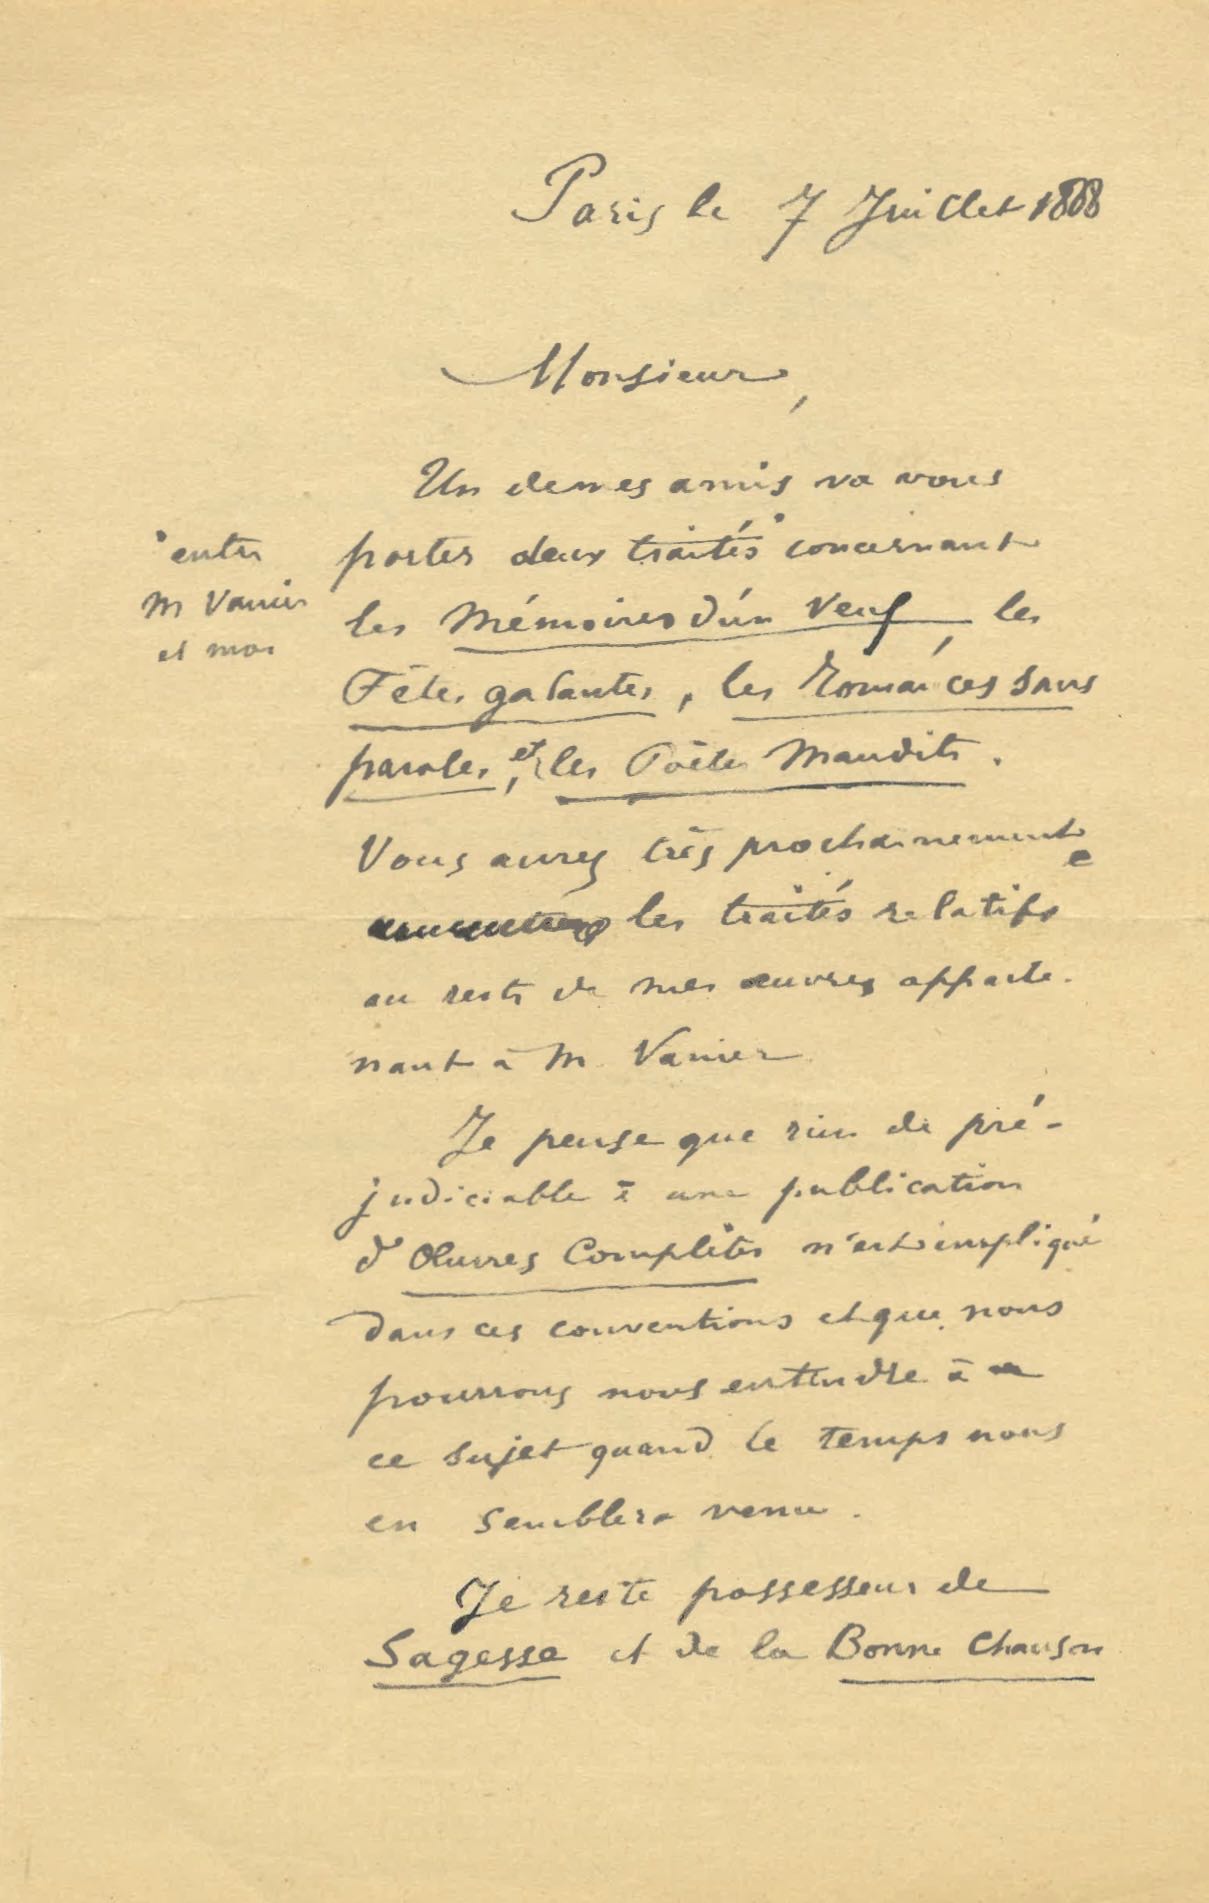 Paris le 7 Juillet 1888
Monsieur,
Un de mes amis va vous
porter deux traités concernant
entre
M Vanier
et moi
les Mémoires d'un Veuf, les
Fêtes galantes, les Romances sans
paroles, et les Poètes Maudits.
Vous aurez très prochainement
les traités relatifs
au reste de mes œuvres apparte-
nant à M. Vanier
Je pense que rien de pré-
judiciable à une publication
d'Œuvres Complètes n'est impliqué
dans ces conventions et que nous
pourrons nous entendre à
ce sujet quand le temps nous
en semblera venu.
Je reste possesseur de
Sagesse et de la Bonne Chanson